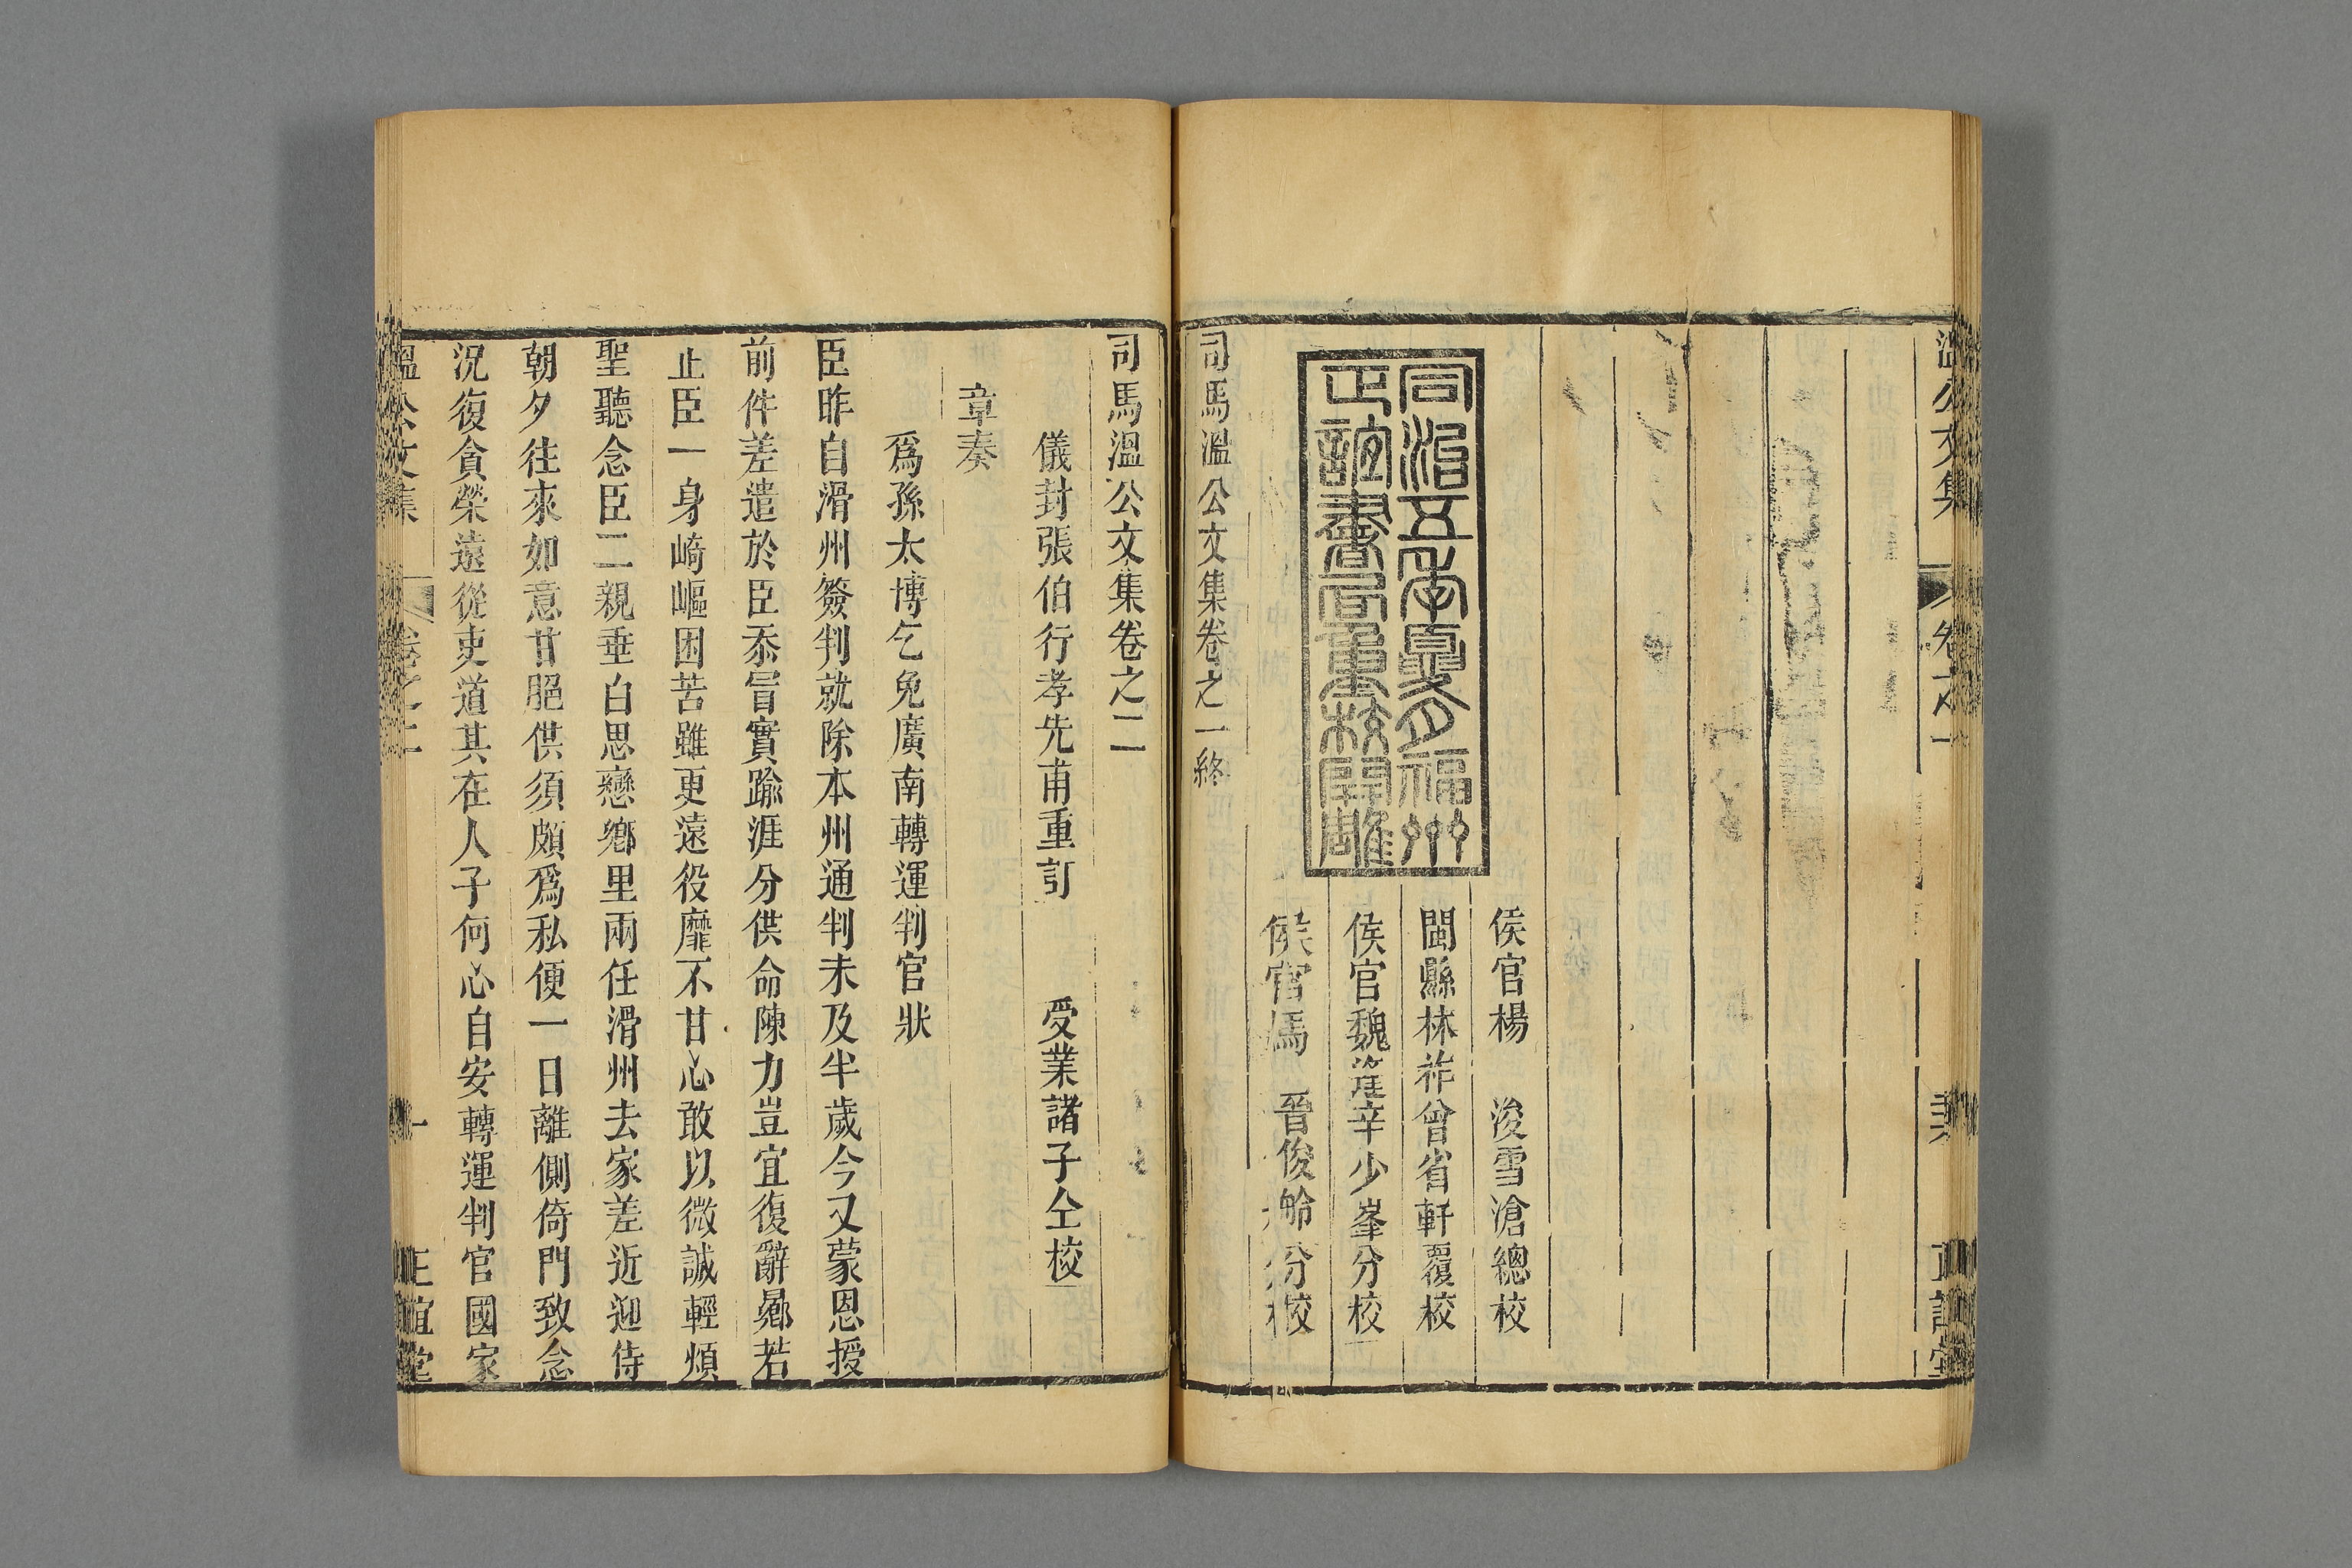 溫公文集 卷之一 正誼堂
侯官楊 浚雪滄總校
閩縣林祚曾省軒覆校
侯官魏 辛少峯分校
侯官馮 晉俊 分校
同治五年夏月福州
正誼書局重校開雕
司馬溫公文集卷之一終
司馬溫公文集卷之二
儀封張伯行孝先甫重訂 受業諸子仝校
章奏
爲孫太博乞免廣南轉運判官狀
臣昨自滑州簽判就除本州通判未及半歲今又蒙恩授
前件差遣於臣忝冒實踰涯分供命陳力豈宜復辭曏若
止臣一身崎嶇困苦雖更遠役靡不甘心敢以微誠輕煩
聖聽念臣二親垂白思戀鄉里兩任滑州去家差近迎侍
朝夕往來如意甘脆供須頗爲私便一日離側倚門致念
況復貪榮遠從吏道其在人子何心自安轉運判官國家
溫公文集 卷之二 一 正誼堂